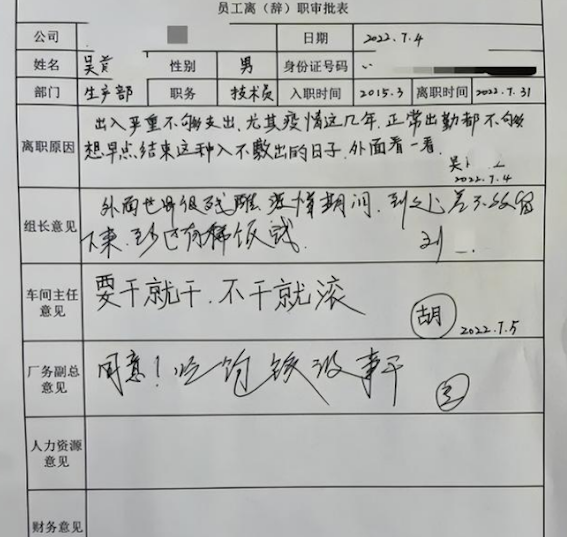 员工离（辞）职审批表
公司 日期 2022.7.4
姓名 吴 性别 男 身份证号码
部门 生产部 职务 技术员 入职时间 2015.3 离职时间 2022.7.31
离职原因 出入严重不够支出，尤其疫情这几年，正常出勤都不够
想早点结束这种入不敷出的日子，外面看一看。
吴
2022.7.4
组长意见 外面世界很残酷，疫情期间，到处差不多，留
下来，至少还有稀饭试．
刘
车间主任意见 要干就干．不干就滚
胡 2022.7.5
厂务副总意见 同意！吃饱饭没事干
人力资源意见
财务意见